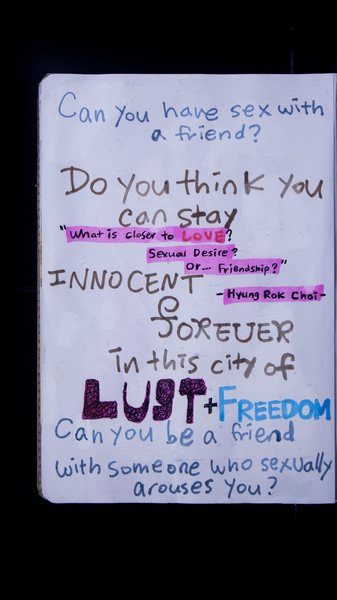 Can you have sex with
a friend?
Do you think you
can stay
"What is closer to LOVE?
Sexual Desire?
Or... Friendship?"
INNOCENT
- Hyung Rok Choi -
&
FOREVER
in this city of
LUST + FREEDOM
Can you be a friend
with someone who sexually
arouses you?